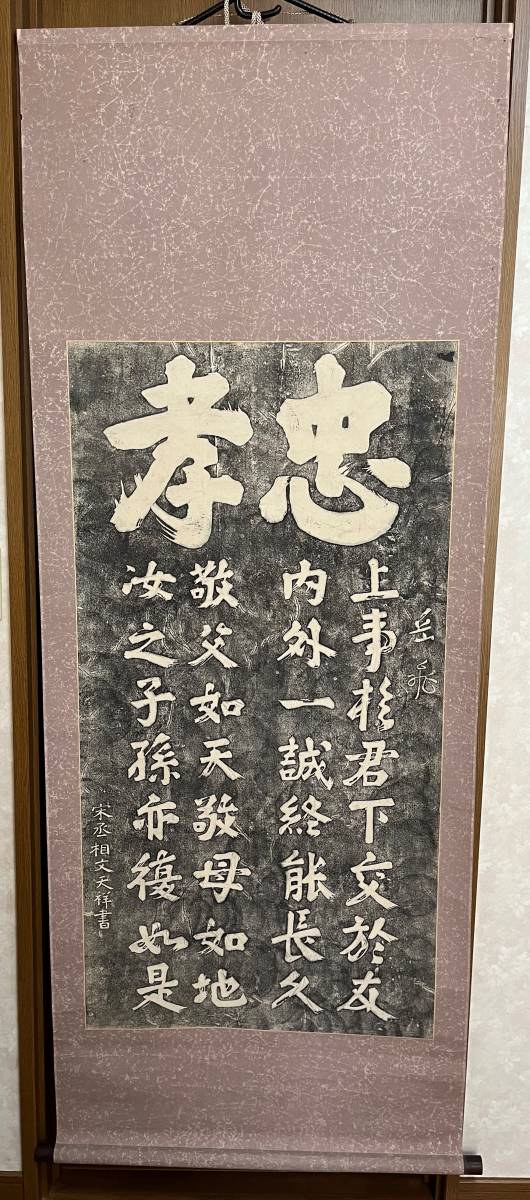 忠孝
岳飛
上事於君下交於友
内外一誠終能長久
敬父如天敬母如地
汝之子孫亦復如是
宋丞相文天祥書